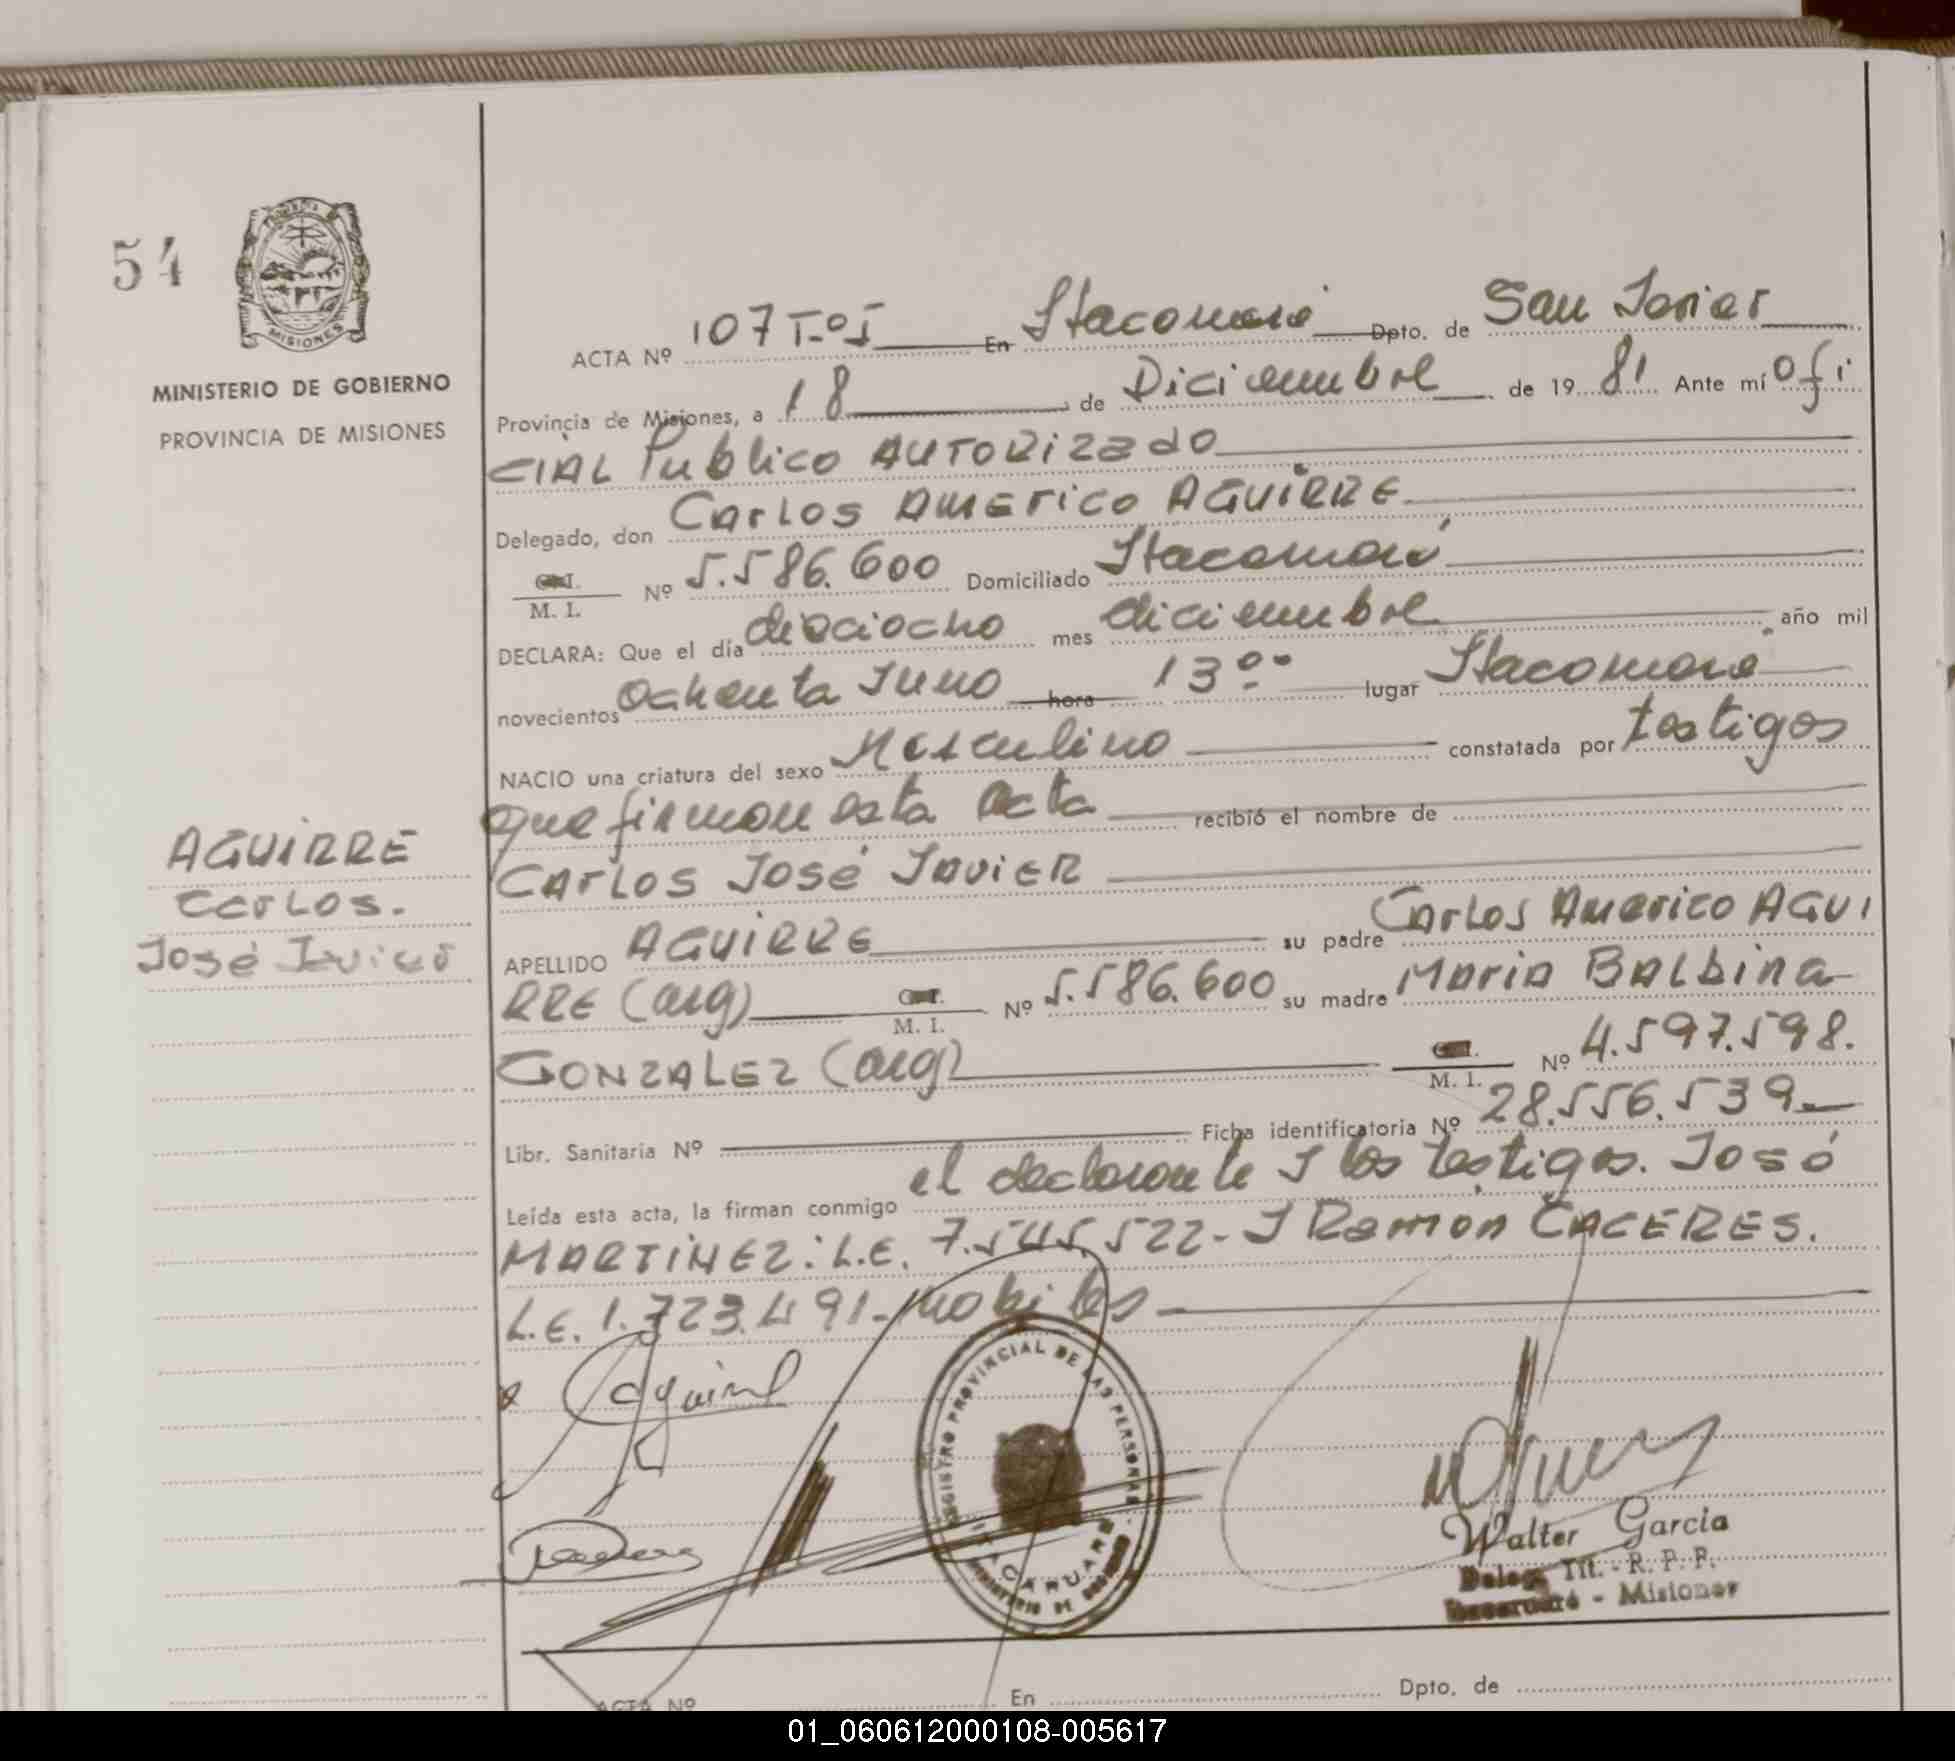 54
MISIONES
MINISTERIO DE GOBIERNO
PROVINCIA DE MISIONES
ACTA Nº 107 T-º I En Itacaruaré Dpto. de San Javier
Provincia de Misiones, a 18 de Diciembre de 1981 Ante mí Ofi
CIAL Publico AUTORIZADO
Delegado, don CARLOS AMERICO AGUIRRE
M. I. Nº 5.586.600 Domiciliado Itacaruaré
DECLARA: Que el día dieciocho mes diciembre año mil
novecientos ochenta I uno hora 13 ºº lugar Itacaruaré
NACIO una criatura del sexo Masculino constatada por testigos
que firman esta acta recibió el nombre de
CARLOS JOSÉ JAVIER
APELLIDO AGUIRRE su padre CARLOS AMERICO AGUI
RRE (arg) M. I. Nº 5.586.600 su madre MARIA BALBINA
GONZALEZ (arg) M. I. Nº 4.597.598.
Libr. Sanitaria Nº Ficha identificatoria Nº 28.556.539
Leída esta acta, la firman conmigo el declarante I los testigos. José
MARTINEZ: L.E. 7.545.522- I Ramon CACERES.
L.E. 1.723.491- habiles
AGUIRRE
Carlos.
José Javier
REGISTRO PROVINCIAL DE LAS PERSONAS
ITACARUARE
MINISTERIO DE GOBIERNO
Walter Garcia
Deleg. Tit. - R. P. P.
Itacaruaré - Misiones
ACTA Nº En Dpto. de
01_060612000108-005617